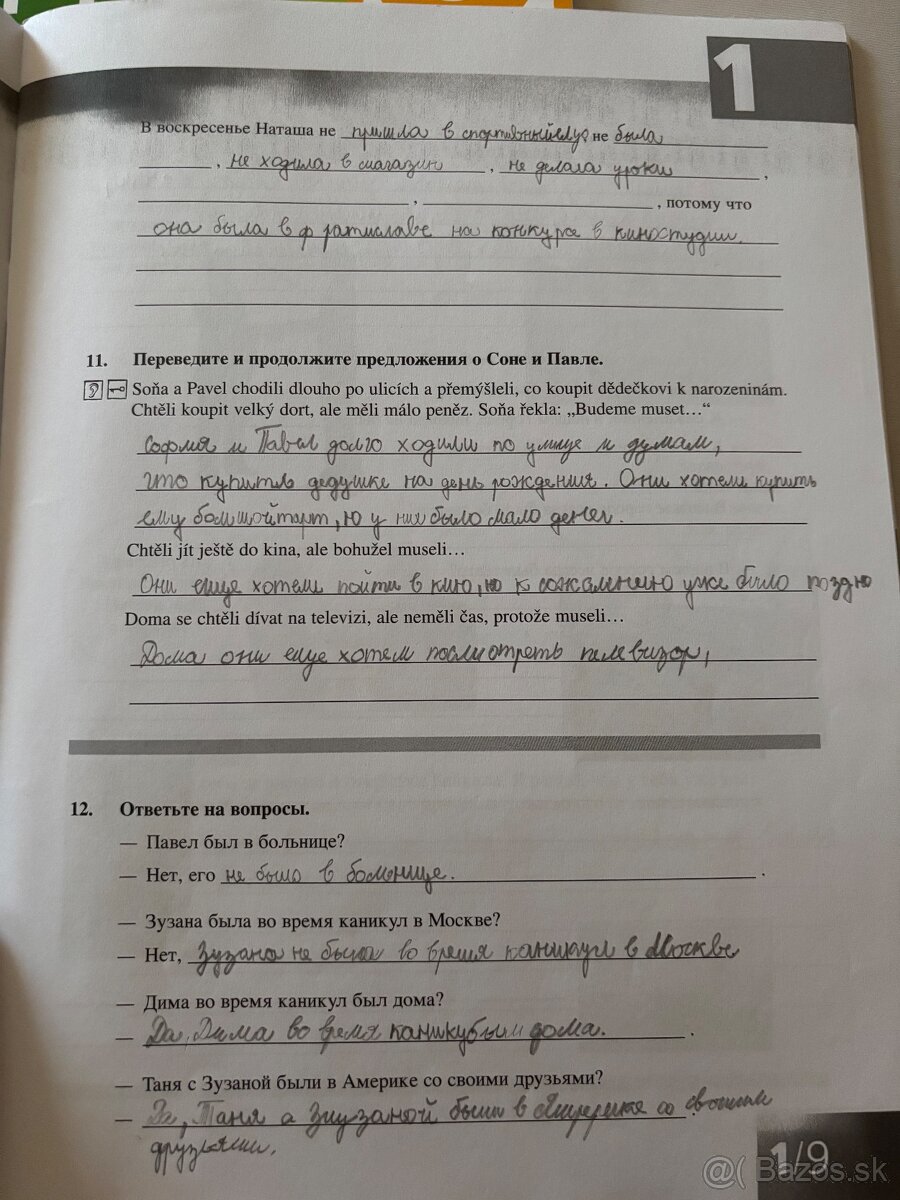 1
В воскресенье Наташа не пришла в спортивный клуб, не была
, не ходила в магазин , не делала уроки ,
, , потому что
она была в братиславе на конкурсе в киностудии.
11. Переведите и продолжите предложения о Соне и Павле.
Soňa a Pavel chodili dlouho po ulicích a přemýšleli, co koupit dědečkovi k narozeninám.
Chtěli koupit velký dort, ale měli málo peněz. Soňa řekla: „Budeme muset…“
София и Павел долго ходили по улице и думали,
что купить дедушке на день рождения. Они хотели купить
ему большой торт, но у них было мало денег.
Chtěli jít ještě do kina, ale bohužel museli…
Они еще хотели пойти в кино, но к сожалению уже было поздно
Doma se chtěli dívat na televizi, ale neměli čas, protože museli…
Дома они еще хотели посмотреть телевизор,
12. Ответьте на вопросы.
— Павел был в больнице?
— Нет, его не было в больнице. .
— Зузана была во время каникул в Москве?
— Нет, Зузана не была во время каникул в Москве
— Дима во время каникул был дома?
— Да, Дима во время каникул был дома. .
— Таня с Зузаной были в Америке со своими друзьями?
— Да, Таня а Зузаной были в Америке со своими
друзьями.
1/9
@( Bazos.sk